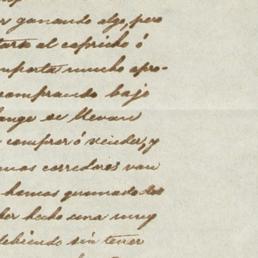 r ganando algo, pero
tarse al capricho ó
mporta mucho apro-
comprando bajo
lange se llevan
comprar ó vender, y
nos corredores van
hemos quemado los
ber hecho una muy
debiendo sin tener